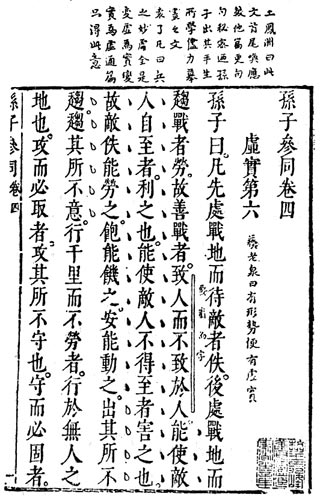 王鳳洲曰此
文首尾喚應
較他篇更句
句秘密迺孫
子出其平生
所學儘力摹
畫之文
袁了凡曰兵
之妙處全是
變虛為實變
實為虛通篇
只得此意
孫子參同卷四
虛實第六 蘇老泉曰有形勢便有虛實
孫子曰凡先處戰地而待敵者佚後處戰地而
趨戰者勞故善戰者致人而不致於人能使敵
人自至者利之也能使敵人不得至者害之也
故敵佚能勞之飽能饑之安能動之出其所不
趨趨其所不意行千里而不勞者行於無人之
地也攻而必取者攻其所不守也守而必固者
孫子參同卷四